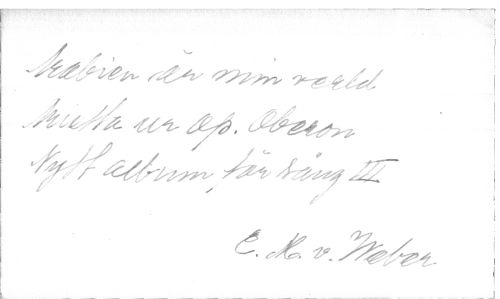 Arabien är min verld
Arietta ur op. Oberon
Nytt album för sång III
C. M. v. Weber